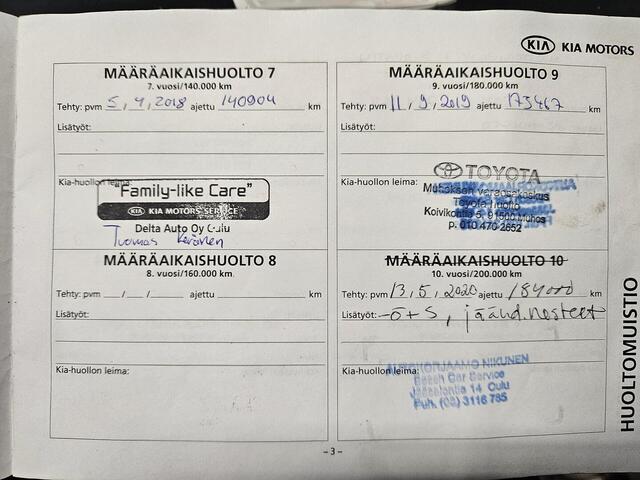 KIA KIA MOTORS
MÄÄRÄAIKAISHUOLTO 7
7. vuosi/140.000 km
Tehty: pvm 5, 4, 2018 ajettu 140904 km
Lisätyöt:
Kia-huollon leima:
"Family-like Care"
KIA KIA MOTORS SERVICE
Delta Auto Oy Oulu
Tuomas Keränen
MÄÄRÄAIKAISHUOLTO 9
9. vuosi/180.000 km
Tehty: pvm 11, 9, 2019 ajettu 175467 km
Lisätyöt:
Kia-huollon leima:
TOYOTA
Muhoksen Varaosakeskus
Toyota-huolto
Koivikontie 5, 91500 Muhos
p. 010 470 2652
MÄÄRÄAIKAISHUOLTO 8
8. vuosi/160.000 km
Tehty: pvm _/_/_ ajettu km
Lisätyöt:
Kia-huollon leima:
MÄÄRÄAIKAISHUOLTO 10
10. vuosi/200.000 km
Tehty: pvm 13, 5, 2020 ajettu 184000 km
Lisätyöt: -ö+s, jäähd.nesteet
Kia-huollon leima:
AUTOKORJAAMO NIKUNEN
Bosch Car Service
14 Oulu
Puh. (08) 3116 785
HUOLTOMUISTIO
– 3 –